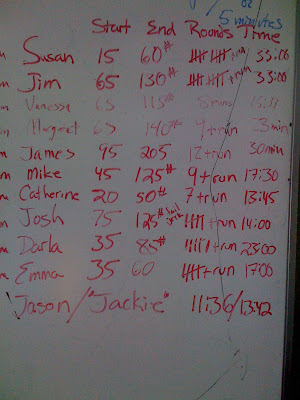 5 minutes
Start End Rounds Time
Susan 15 60# 33:00
Jim 65 130# 33:00
Vanessa 65 115#
Margaret 65 140# 9+run
James 95 205 12+run 30min
Mike 45 125# 9+run 17:30
Catherine 20 50# 7+run 13:45
Josh 75 125# 14:00
Darla 35 85# +run 23:00
Emma 35 60 +run 17:00
Jason/"Jackie" 11:36/13:42